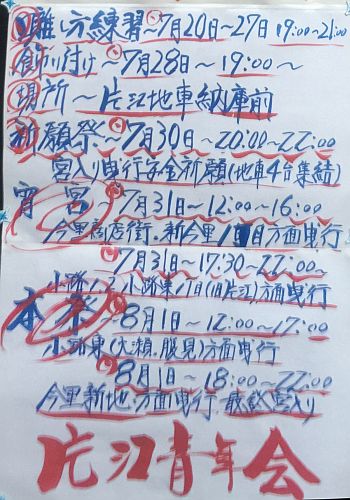 囃し方練習～7月20日～27日 19:00～21:00
飾り付け～7月28日～19:00～
場所～片江地車納庫前
祈願祭～7月30日～20:00～22:00
宮入り曳行安全祈願(地車4台集結)
宵宮～7月31日～12:00～16:00
今里商店街.新今里 方面曳行
7月31日～17:30～22:00～
小路1.2 小路東1丁目(旧片江)方面曳行
本祭～8月1日～12:00～17:00
小路東(大瀬.腹見)方面曳行
8月1日～18:00～22:00
今里新地.方面曳行 宮入り
片江青年会